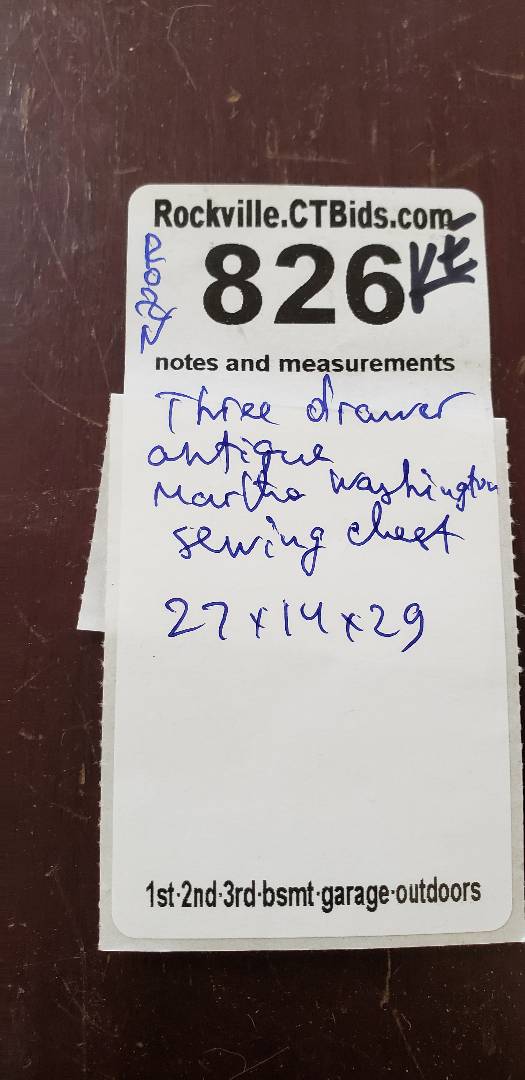 Rockville.CTBids.com
826
notes and measurements
Three drawer
antique
Martha Washington
sewing chest
27 x 14 x 29
1st·2nd·3rd·bsmt·garage·outdoors